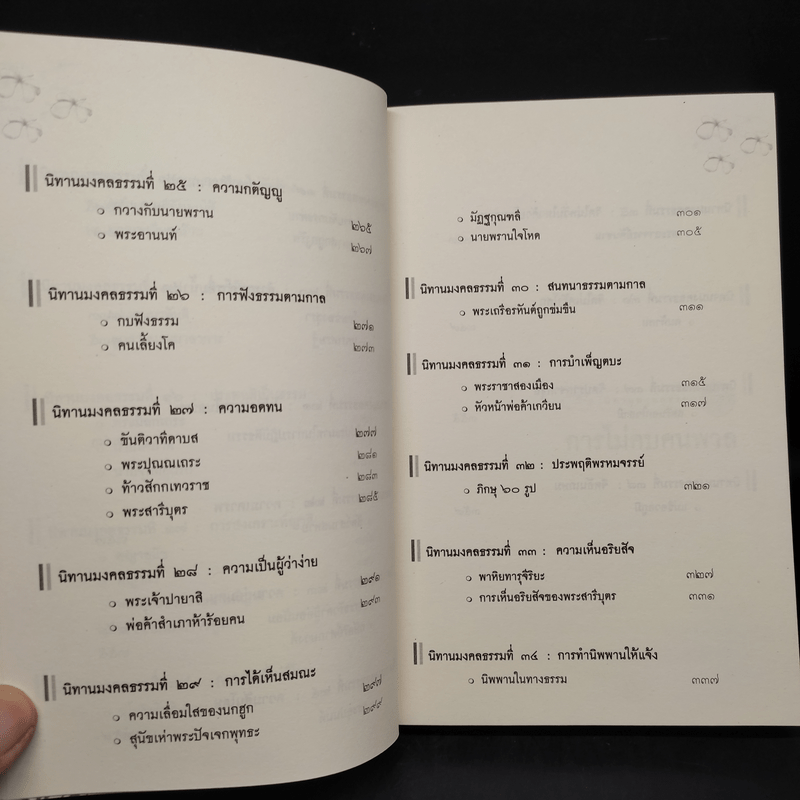 นิทานมงคลธรรมที่ ๒๕ : ความกตัญญู
๐ กวางกับนายพราน ๒๖๕
๐ พระอานนท์ ๒๖๗
นิทานมงคลธรรมที่ ๒๖ : การฟังธรรมตามกาล
๐ กบฟังธรรม ๒๗๑
๐ คนเลี้ยงโค ๒๗๓
นิทานมงคลธรรมที่ ๒๗ : ความอดทน
๐ ขันติวาทีดาบส ๒๗๗
๐ พระปุณณเถระ ๒๘๑
๐ ท้าวสักกเทวราช ๒๘๓
๐ พระสารีบุตร ๒๘๕
นิทานมงคลธรรมที่ ๒๘ : ความเป็นผู้ว่าง่าย
๐ พระเจ้าปายาสิ ๒๙๑
๐ พ่อค้าสำเภาห้าร้อยคน ๒๙๓
นิทานมงคลธรรมที่ ๒๙ : การได้เห็นสมณะ
๐ ความเลื่อมใสของนกฮูก ๒๙๗
๐ สุนัขเห่าพระปัจเจกพุทธะ ๒๙๙
๐ มัฏฐกุณฑลี ๓๐๑
๐ นายพรานใจโหด ๓๐๕
นิทานมงคลธรรมที่ ๓๐ : สนทนาธรรมตามกาล
๐ พระเถรีอรหันต์ถูกข่มขืน ๓๑๑
นิทานมงคลธรรมที่ ๓๑ : การบำเพ็ญตบะ
๐ พระราชาสองเมือง ๓๑๕
๐ หัวหน้าพ่อค้าเกวียน ๓๑๗
นิทานมงคลธรรมที่ ๓๒ : ประพฤติพรหมจรรย์
๐ ภิกษุ ๖๐ รูป ๓๒๑
นิทานมงคลธรรมที่ ๓๓ : ความเห็นอริยสัจ
๐ พาหิยทารุจีริยะ ๓๒๗
๐ การเห็นอริยสัจของพระสารีบุตร ๓๓๑
นิทานมงคลธรรมที่ ๓๔ : การทำนิพพานให้แจ้ง
๐ นิพพานในทางธรรม ๓๓๗